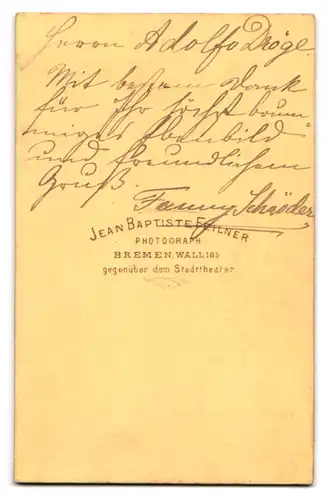 Herrn Adolfo Dröge.
Mit bestem Dank
für Ihr höchst
Ebenbild
und freundlichem
Gruß.
Fanny Schröder,
JEAN BAPTISTE FEILNER
PHOTOGRAPH
BREMEN, WALL 165
gegenüber dem Stadttheater